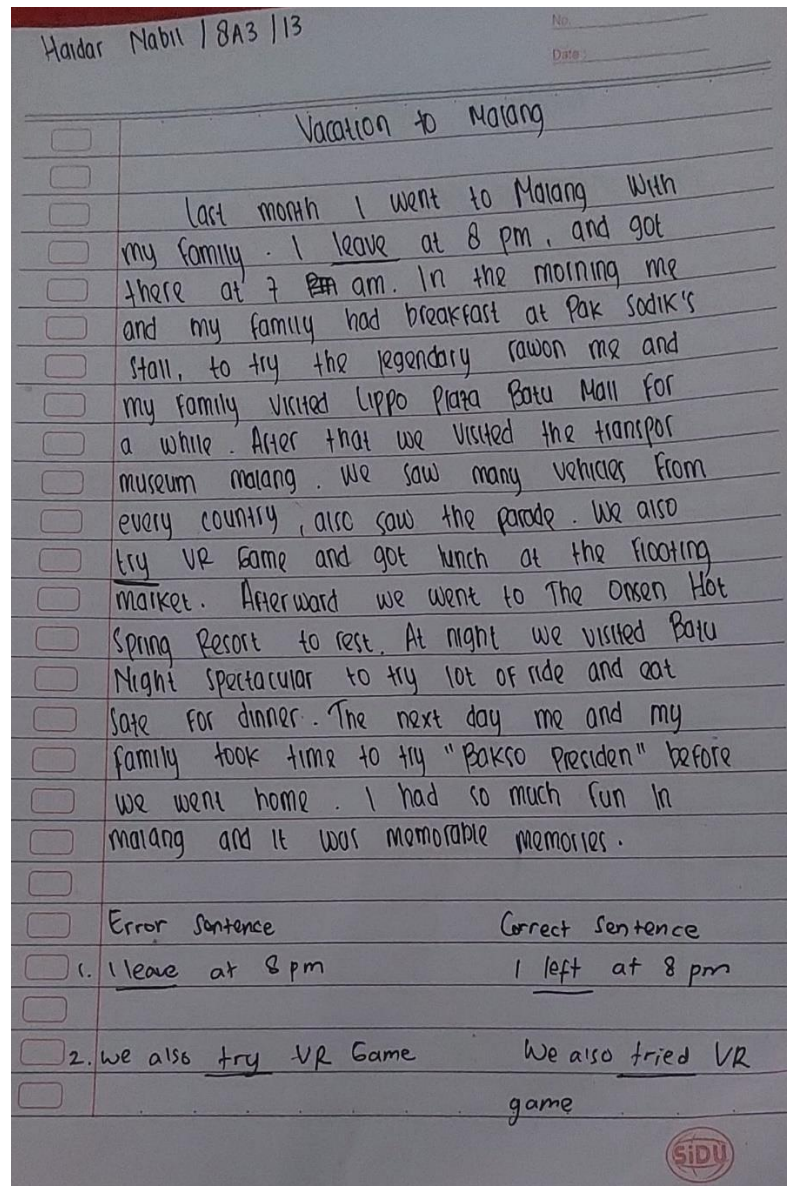 Haidar Nabil / 8A3 / 13
No.
Date :
Vacation to Malang
Last month I went to Malang With
my family. I leave at 8 pm, and got
there at 7 am. In the morning me
and my family had breakfast at Pak Sodik's
Stall, to try the legendary rawon me and
my family visited Lippo Plaza Batu Mall For
a while. After that we visited the transpor
museum malang. We saw many vehicles from
every country, also saw the parade. We also
try VR Game and got lunch at the Flooting
market. Afterward we went to The Onsen Hot
Spring Resort to rest. At night we visited Batu
Night Spectacular to try lot of ride and eat
Sate For dinner. The next day me and my
family took time to try "Bakso Presiden" before
we went home. I had so much fun In
malang and it was memorable memories.
Error Sentence Correct Sentence
1. I leave at 8 pm I left at 8 pm
2. we also try VR Game We also tried VR
game
SiDU